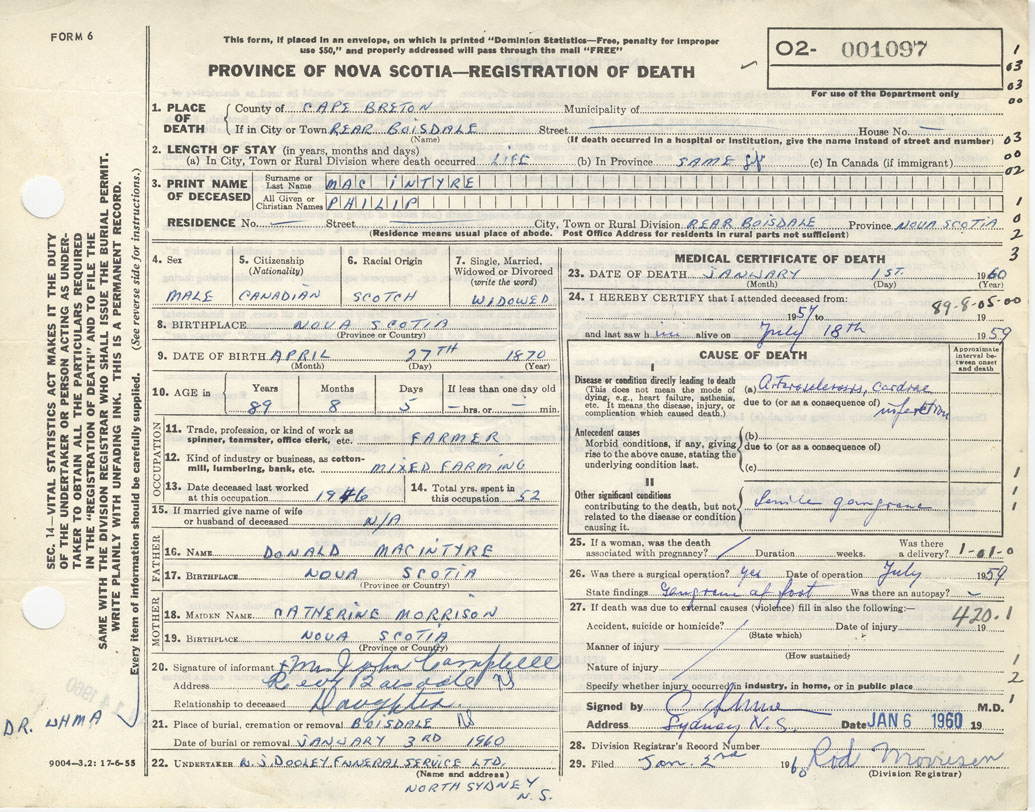 FORM 6
This form, if placed in an envelope, on which is printed "Dominion Statistics—Free, penalty for improper
use $50," and properly addressed will pass through the mail "FREE"
PROVINCE OF NOVA SCOTIA—REGISTRATION OF DEATH
O2- 001097
For use of the Department only
1. PLACE OF DEATH County of CAPE BRETON Municipality of
If in City or Town REAR BOISDALE Street House No. —
(Name) (If death occurred in a hospital or institution, give the name instead of street and number)
2. LENGTH OF STAY (in years, months and days)
(a) In City, Town or Rural Division where death occurred LIFE (b) In Province SAME (c) In Canada (if immigrant)
3. PRINT NAME OF DECEASED Surname or Last Name MAC INTYRE
All Given or Christian Names PHILIP
RESIDENCE No. — Street — City, Town or Rural Division REAR BOISDALE Province NOVA SCOTIA
(Residence means usual place of abode. Post Office Address for residents in rural parts not sufficient)
4. Sex MALE
5. Citizenship (Nationality) CANADIAN
6. Racial Origin SCOTCH
7. Single, Married, Widowed or Divorced (write the word) WIDOWED
8. BIRTHPLACE NOVA SCOTIA
(Province or Country)
9. DATE OF BIRTH APRIL 27TH 1870
(Month) (Day) (Year)
10. AGE in Years Months Days If less than one day old
89 8 5 — hrs. or — min.
OCCUPATION
11. Trade, profession or kind of work as
spinner, teamster, office clerk, etc. FARMER
12. Kind of industry or business, as cotton-
mill, lumbering, bank, etc. MIXED FARMING
13. Date deceased last worked
at this occupation 1946
14. Total yrs. spent in
this occupation 52
15. If married give name of wife
or husband of deceased N/A
FATHER
16. NAME DONALD MACINTYRE
17. BIRTHPLACE NOVA SCOTIA
(Province or Country)
MOTHER
18. MAIDEN NAME CATHERINE MORRISON
19. BIRTHPLACE NOVA SCOTIA
(Province or Country)
20. Signature of informant Mrs John Campbell
Address
Relationship to deceased Daughter
21. Place of burial, cremation or removal BOISDALE NS
Date of burial or removal JANUARY 3RD 1960
22. UNDERTAKER W.J. DOOLEY FUNERAL SERVICE LTD.
(Name and address)
NORTH SYDNEY
N.S.
MEDICAL CERTIFICATE OF DEATH
23. DATE OF DEATH JANUARY 1ST. 1960
(Month) (Day) (Year)
24. I HEREBY CERTIFY that I attended deceased from:
89-8-05-00
1957 to 19
and last saw him alive on July 18th 1959
CAUSE OF DEATH
Approximate interval between onset and death
I
Disease or condition directly leading to death
(This does not mean the mode of
dying, e.g., heart failure, asthenia,
etc. It means the disease, injury, or
complication which caused death.)
(a) Arteriosclerosis, Cardiac
due to (or as a consequence of) infarction
Antecedent causes
Morbid conditions, if any, giving
rise to the above cause, stating the
underlying condition last.
(b)
due to (or as a consequence of)
(c)
II
Other significant conditions
contributing to the death, but not
related to the disease or condition
causing it.
Senile gangrene
25. If a woman, was the death
associated with pregnancy? Duration weeks. Was there
a delivery? 1-01-0
26. Was there a surgical operation? yes Date of operation July 1959
State findings Gangrene of foot Was there an autopsy? –
27. If death was due to external causes (violence) fill in also the following:—
420.1
Accident, suicide or homicide? Date of injury 19
(State which)
Manner of injury
(How sustained)
Nature of injury
Specify whether injury occurred in industry, in home, or in public place
Signed by M.D.
Address Sydney N.S. Date JAN 6 1960 19
28. Division Registrar's Record Number
29. Filed Jan. 2nd 1960 Rod Morrison
(Division Registrar)
SEC. 14—VITAL STATISTICS ACT MAKES IT THE DUTY
OF THE UNDERTAKER OR PERSON ACTING AS UNDER-
TAKER TO OBTAIN ALL THE PARTICULARS REQUIRED
IN THE "REGISTRATION OF DEATH" AND TO FILE THE
SAME WITH THE DIVISION REGISTRAR WHO SHALL ISSUE THE BURIAL PERMIT.
WRITE PLAINLY WITH UNFADING INK. THIS IS A PERMANENT RECORD.
Every item of information should be carefully supplied. (See reverse side for instructions.)
DR. WHMA
9004—3.2: 17-6-55
1
03
03
00
03
00
02
1
0
2
3
1
1
1
1
2
1